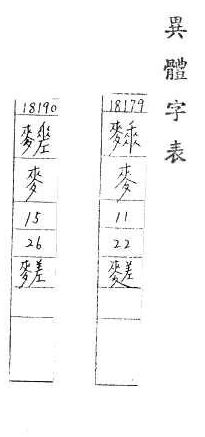 異體字表
18179
麥
11
22
18190
麥
15
26